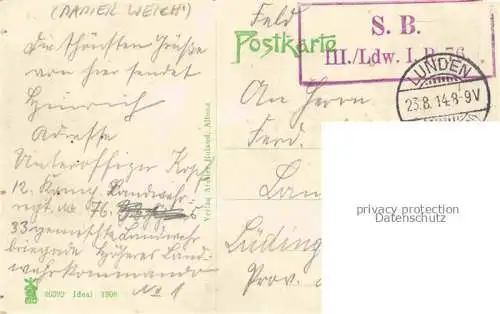 (PAPIER WEICH!)
Die schönsten Grüße
von hier sendet
Heinrich
Adresse
Unteroffizier
12. Komp. Landwehr
regt. No 76.
33 gemischte Landwehr
brigade Höheres Land
wehrkommando
No 1
86392 Ideal 1908
Verlag Arnold Roland, Altona
Feld
Postkarte
S. B.
III./Ldw. I. R. 76
LUNDEN
23.8.14.8-9V
An Herrn
Ferd.
Lüding
Prov.
privacy protection
Datenschutz